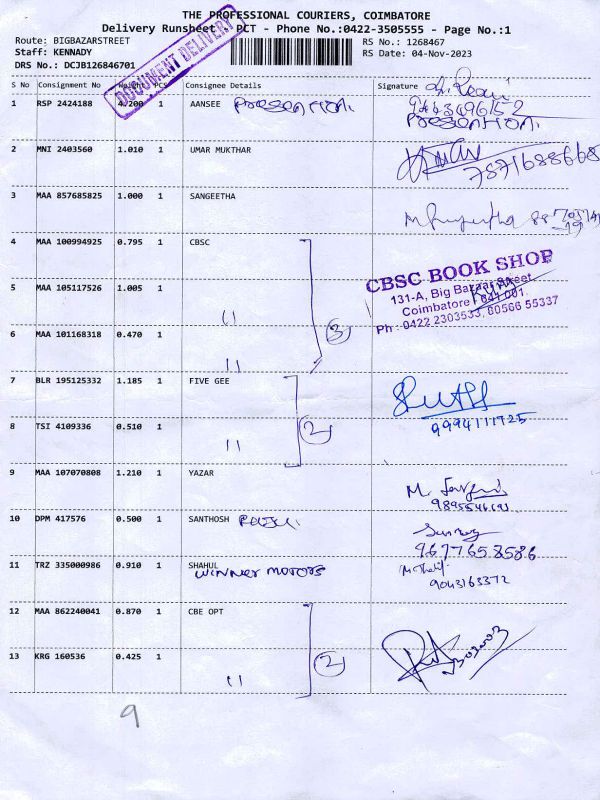 THE PROFESSIONAL COURIERS, COIMBATORE
Delivery Runsheet - PCT - Phone No.:0422-3505555 - Page No.:1
Route: BIGBAZARSTREET
RS No.: 1268467
Staff: KENNADY
RS Date: 04-Nov-2023
DRS No.: DCJB126846701
DOCUMENT DELIVERY
S No Consignment No Weight PCS Consignee Details Signature
1 RSP 2424188 4.200 1 AANSEE
2 MNI 2403560 1.010 1 UMAR MUKTHAR
7871688668
3 MAA 857685825 1.000 1 SANGEETHA
4 MAA 100994925 0.795 1 CBSC
5 MAA 105117526 1.005 1
11
6 MAA 101168318 0.470 1
11
3
CBSC BOOK SHOP
131-A, Big Bazaar Street,
Coimbatore - 641 001.
Ph : 0422 2303533, 80566 55337
7 BLR 195125332 1.185 1 FIVE GEE
9994111725
8 TSI 4109336 0.510 1
11
2
9 MAA 107070808 1.210 1 YAZAR
10 DPM 417576 0.500 1 SANTHOSH
9677658586
11 TRZ 335000986 0.910 1 SHAHUL
WINNER MOTORS
9043163372
12 MAA 862240041 0.870 1 CBE OPT
13 KRG 160536 0.425 1
11
2
9